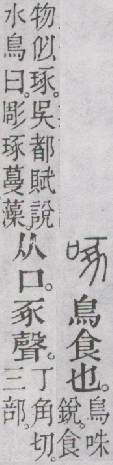 啄 鳥食也。
鳥咮
銳。食
物似琢。吳都賦說
水鳥曰。彫琢蔓藻。
从口。豖聲。
丁角切。
三部。